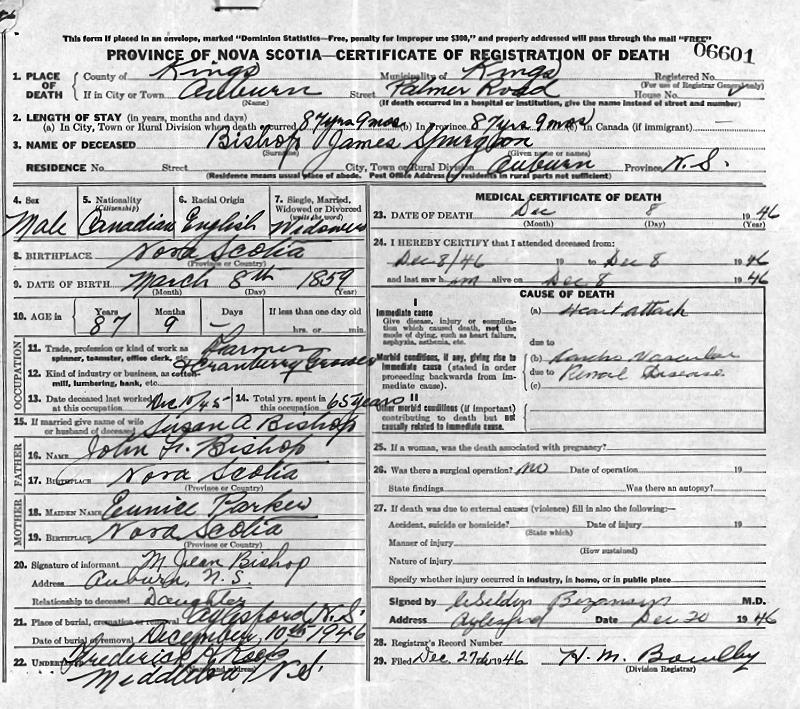 This form if placed in an envelope, marked "Dominion Statistics—Free, penalty for improper use $300," and properly addressed will pass through the mail "FREE"
PROVINCE OF NOVA SCOTIA—CERTIFICATE OF REGISTRATION OF DEATH
06601
1. PLACE OF DEATH
County of Kings Municipality of Kings Registered No.
(For use of Registrar General only)
If in City or Town Auburn Street Palmer Road House No.
(Name) (If death occurred in a hospital or institution, give the name instead of street and number)
2. LENGTH OF STAY (in years, months and days)
(a) In City, Town or Rural Division where death occurred 87 yrs 9 mos (b) In Province 87 yrs 9 mos (c) In Canada (if immigrant) —
3. NAME OF DECEASED Bishop James Spurgeon
(Surname) (Given name or names)
RESIDENCE No. Street City, Town or Rural Division Auburn Province N.S.
(Residence means usual place of abode. Post Office Address of residents in rural parts not sufficient)
4. Sex
Male
5. Nationality
(Citizenship)
Canadian
6. Racial Origin
English
7. Single, Married, Widowed or Divorced
(write the word)
Widower
8. BIRTHPLACE Nova Scotia
(Province or Country)
9. DATE OF BIRTH March 8th 1859
(Month) (Day) (Year)
10. AGE in Years Months Days If less than one day old
87 9 – hrs. or min.
OCCUPATION
11. Trade, profession or kind of work as spinner, teamster, office clerk, etc. Farmer
12. Kind of industry or business, as cotton-mill, lumbering, bank, etc. & Cranberry Grower
13. Date deceased last worked at this occupation Dec 10/45
14. Total yrs. spent in this occupation 65 years
15. If married give name of wife or husband of deceased Susan A Bishop
FATHER
16. NAME John F. Bishop
17. BIRTHPLACE Nova Scotia
(Province or Country)
MOTHER
18. MAIDEN NAME Eunice Parker
19. BIRTHPLACE Nova Scotia
(Province or Country)
20. Signature of informant M Jean Bishop
Address Auburn, N.S.
Relationship to deceased Daughter
21. Place of burial, cremation or removal Aylesford N.S.
Date of burial or removal December 10th 1946
22. UNDERTAKER Frederick A
(Name and address)
Middleton N.S.
MEDICAL CERTIFICATE OF DEATH
23. DATE OF DEATH Dec 8 1946
(Month) (Day) (Year)
24. I HEREBY CERTIFY that I attended deceased from:
Dec 8/46 19 to Dec 8 1946
and last saw him alive on Dec 8 1946
CAUSE OF DEATH
I
Immediate cause
Give disease, injury or complication which caused death, not the mode of dying, such as heart failure, asphyxia, asthenia, etc.
(a) Heart attack
due to
Morbid conditions, if any, giving rise to immediate cause (stated in order proceeding backwards from immediate cause).
(b) Vascular
due to Renal Disease
(c)
II
Other morbid conditions (if important) contributing to death but not causally related to immediate cause.
25. If a woman, was the death associated with pregnancy?
26. Was there a surgical operation? no Date of operation 19
State findings Was there an autopsy?
27. If death was due to external causes (violence) fill in also the following:—
Accident, suicide or homicide? Date of injury 19
(State which)
Manner of injury
(How sustained)
Nature of injury
Specify whether injury occurred in industry, in home, or in public place
Signed by Seldon Bezanson M.D.
Address Aylesford Date Dec 20 1946
28. Registrar's Record Number
29. Filed Dec. 27th 1946 H. M.
(Division Registrar)